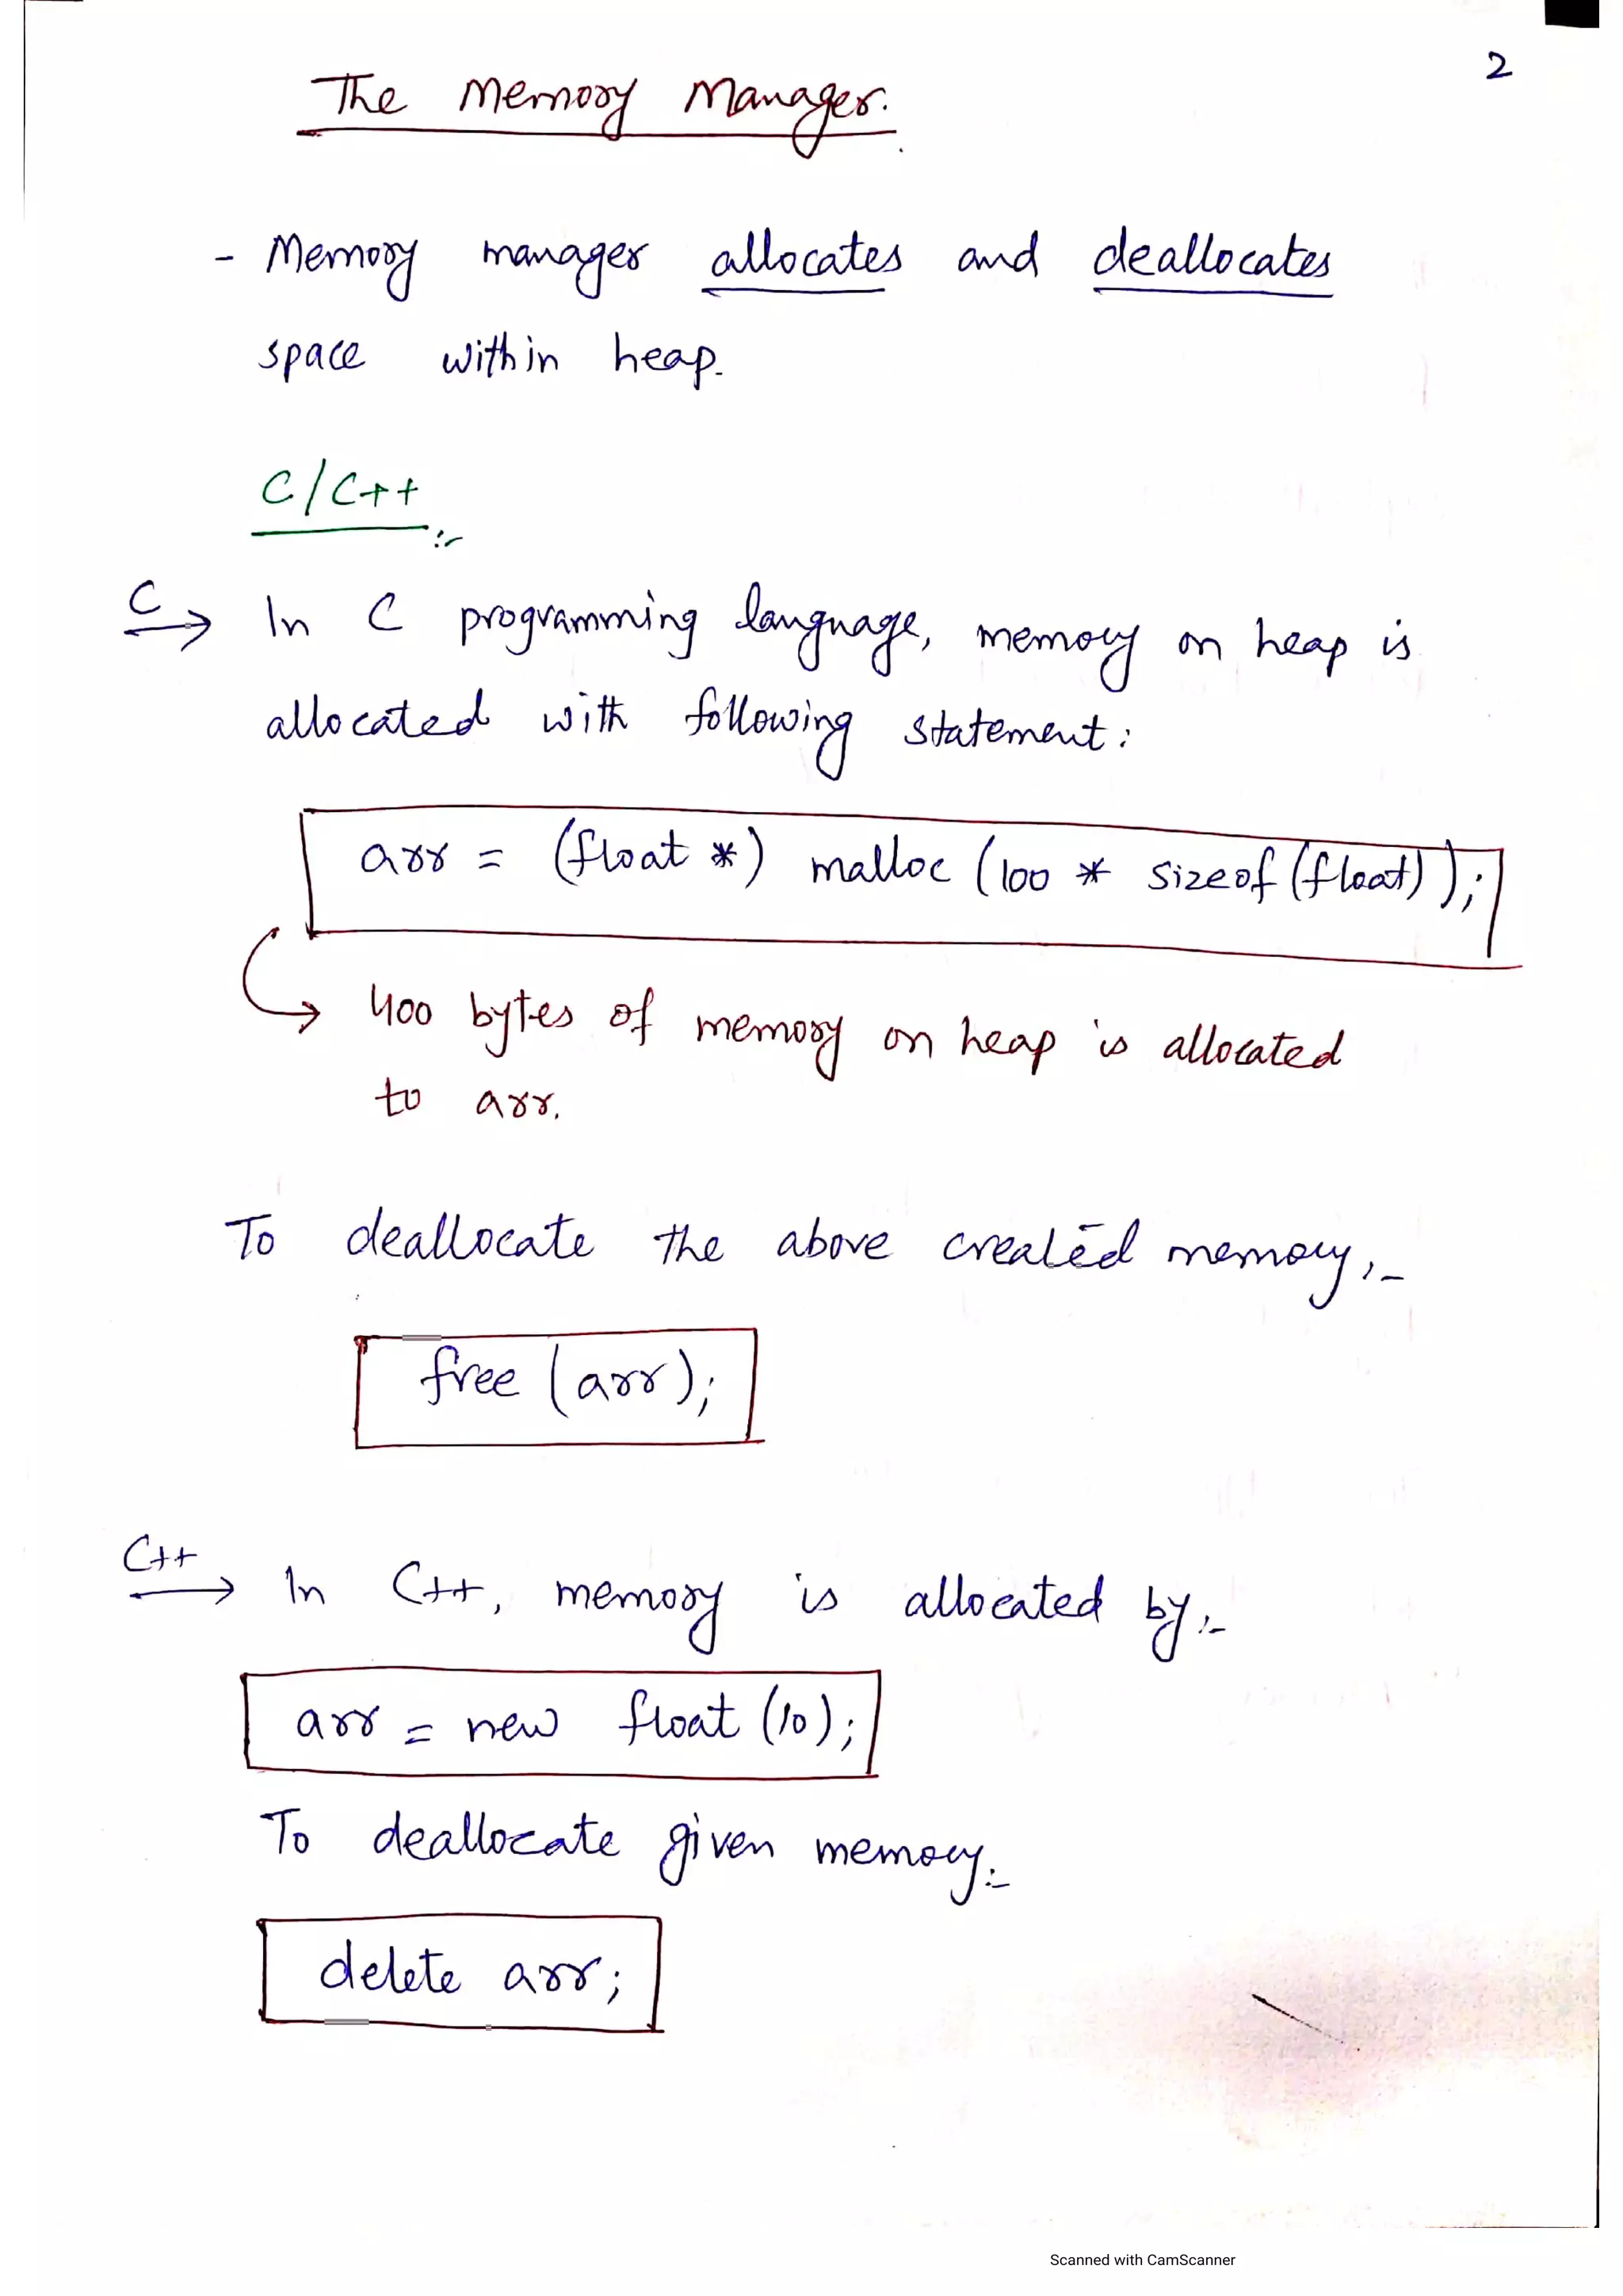 2
The Memory Manager.
- Memory manager allocates and deallocates
space within heap.
C/C++ :-
C → In C programming language, memory on heap is
allocated with following statement:
arr = (float *) malloc (100 * sizeof (float));
→ 400 bytes of memory on heap is allocated
to arr.
To deallocate the above created memory,-
free (arr);
C++ → In C++, memory is allocated by:-
arr = new float (10);
To deallocate given memory:-
delete arr;
Scanned with CamScanner